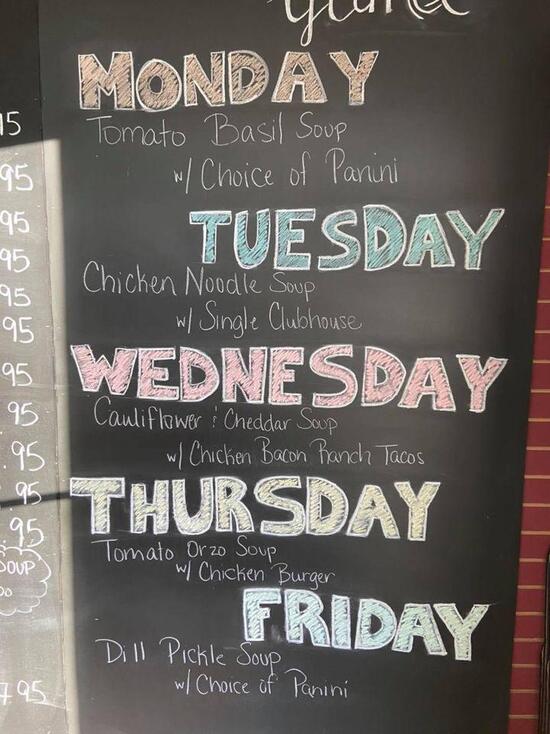 MONDAY
Tomato Basil Soup
w/ Choice of Panini
TUESDAY
Chicken Noodle Soup
w/ Single Clubhouse
WEDNESDAY
Cauliflower & Cheddar Soup
w/ Chicken Bacon Ranch Tacos
THURSDAY
Tomato Orzo Soup
w/ Chicken Burger
FRIDAY
Dill Pickle Soup
w/ Choice of Panini
15
95
95
95
95
95
95
95
.95
.95
.95
SOUP
7.95